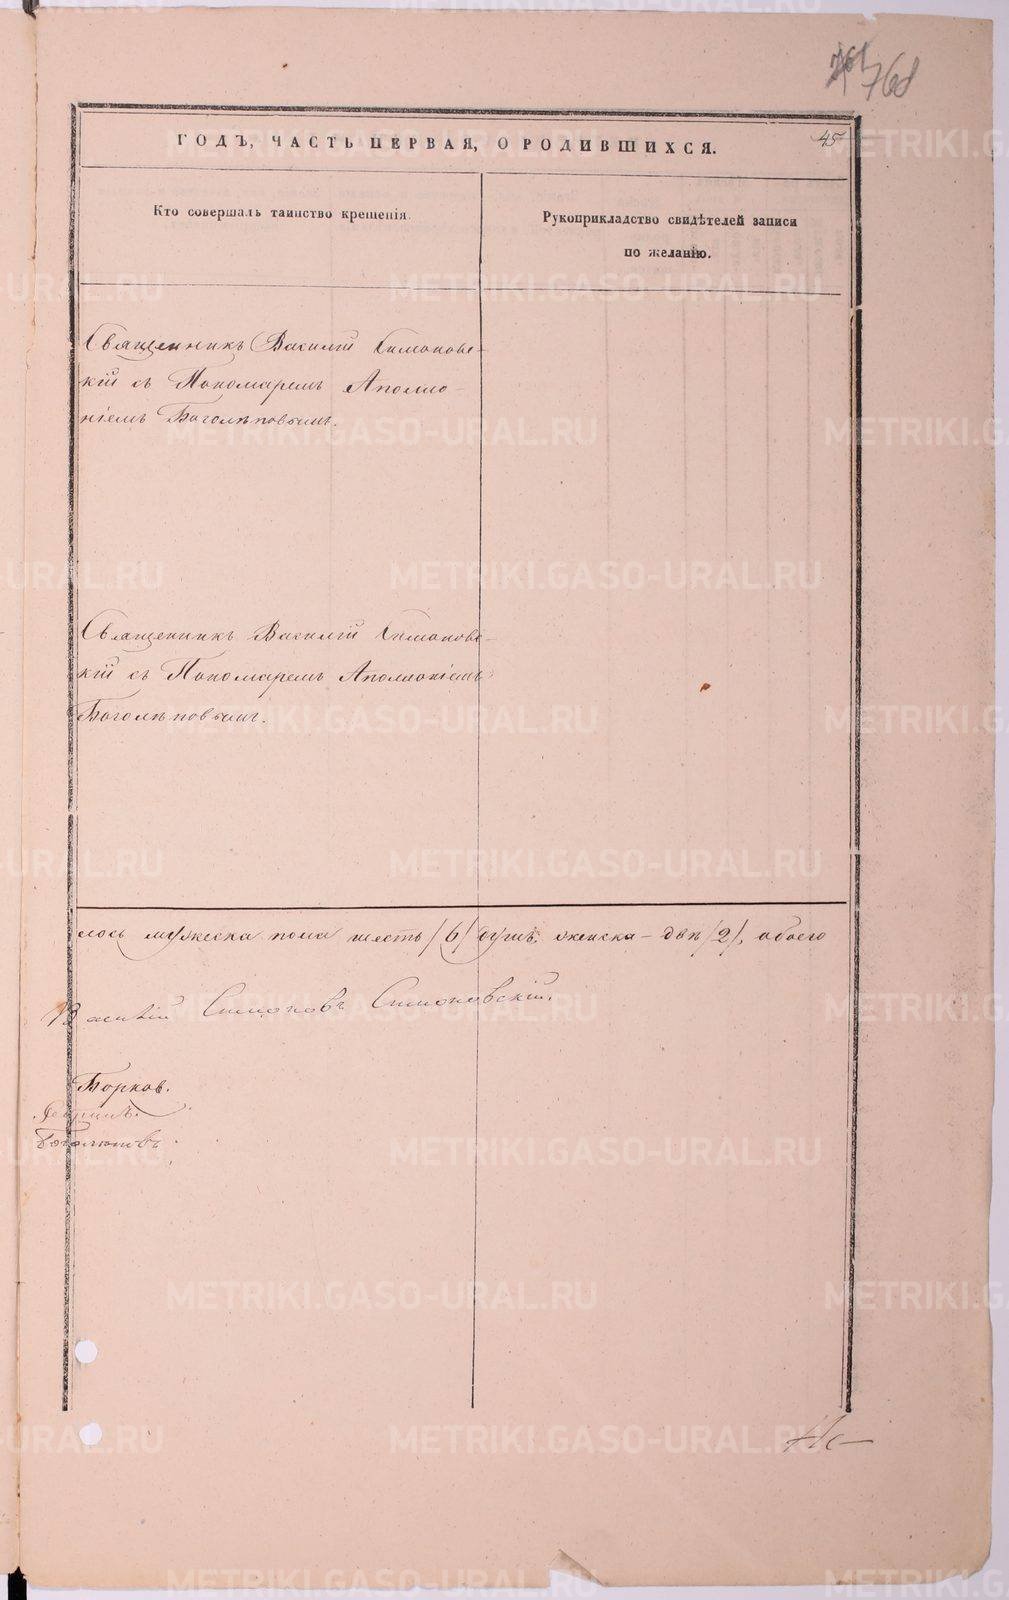 768
ГОДЪ, ЧАСТЬ ПЕРВАЯ, О РОДИВШИХСЯ.
45
Кто совершалъ таинство крещенія.
Рукоприкладство свидѣтелей записи
по желанію.
Священникъ Василій Симонов-
скій съ Пономаремъ Аполло-
ніемъ Боголѣповымъ.
Священникъ Василій Симонов-
скій съ Пономаремъ Аполлоніемъ
Боголѣповымъ.
лось мужеска пола шесть /6/ душъ женска - двѣ /2/, обоего
Василій Симоновъ Симоновскій.
METRIKI.GASO-URAL.RU